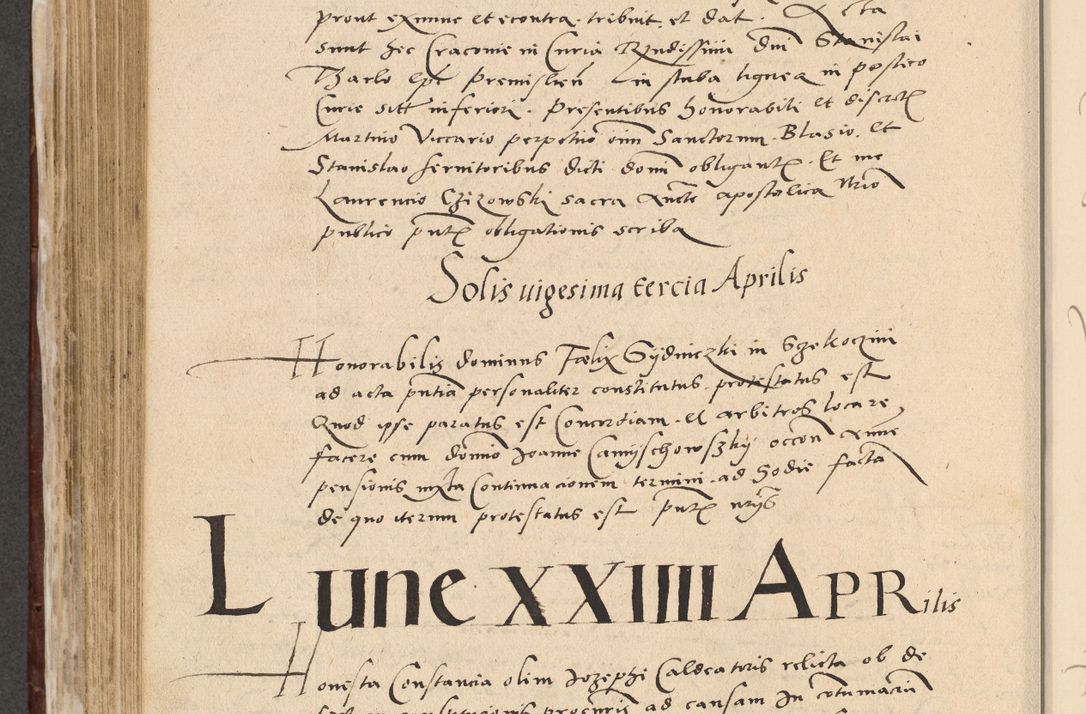 prout ex nunc et econtra tribuit et dat. Acta
sunt hec Cracovie in Curia Rndissimi dni Stanislai
Tharlo epi Premislien in stuba lignea in postico
Curie sitt inferiori. Presentibus honorabili et discret
Martino Viccario perpetuo oim Sanctorum. Blasio. et
Stanislao servitoribus dicti domi obligant. Et me
Laurencio Czizowski sacra aucte apostolica Ntrio
publico pnt obligationis scriba
Solis uigesima tercia Aprilis
Honorabilis dominus Fælix Gÿdniczki in Sczekoczini
ad acta pntia personaliter constitutus protestatus est
Quod ipse paratus est Concordiam et arbitros locare
facere cum domio Joanne Camÿschowszkÿ occon anne
pensionis iuxta Continuacionem termini ad hodie facta
de quo iterum protestatus est pnt
Lune XXIIII APRilis
Honesta Constancia olim Jozephi Caldeatoris relicta ob de
ad causam in cotumacia